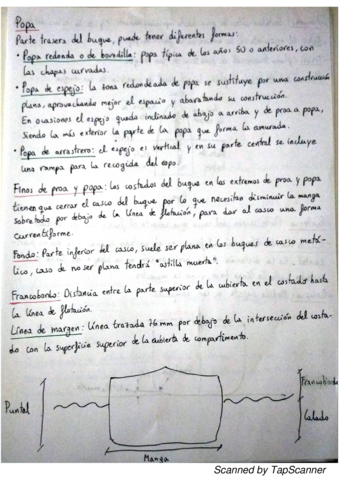 Popa
Parte trasera del buque, puede tener diferentes formas:
• Popa redonda o de bovedilla: popa típica de los años 50 o anteriores, con
las chapas curvadas.
• Popa de espejo: la zona redondeada de popa se sustituye por una construcción
plana, aprovechando mejor el espacio y abaratando su construcción.
En ocasiones el espejo queda inclinado de abajo a arriba y de proa a popa,
siendo la más exterior la parte de la popa que forma la amurada.
• Popa de arrastrero: el espejo es vertical y en su parte central se incluye
una rampa para la recogida del copo.
Finos de proa y popa: los costados del buque en los extremos de proa y popa
tienen que cerrar el casco del buque por lo que necesitan disminuir la manga
sobre todo por debajo de la línea de flotación, para dar al casco una forma
currentiforme.
Fondo: Parte inferior del casco, suele ser plana en los buques de casco metá-
lico, caso de no ser plana tendrá "astilla muerta".
Francobordo: Distancia entre la parte superior de la cubierta en el costado hasta
la línea de flotación.
Línea de margen: línea trazada 76 mm por debajo de la intersección del costa-
do con la superficie superior de la cubierta de compartimento.
Francobordo
Puntal
Calado
Manga
Scanned by TapScanner